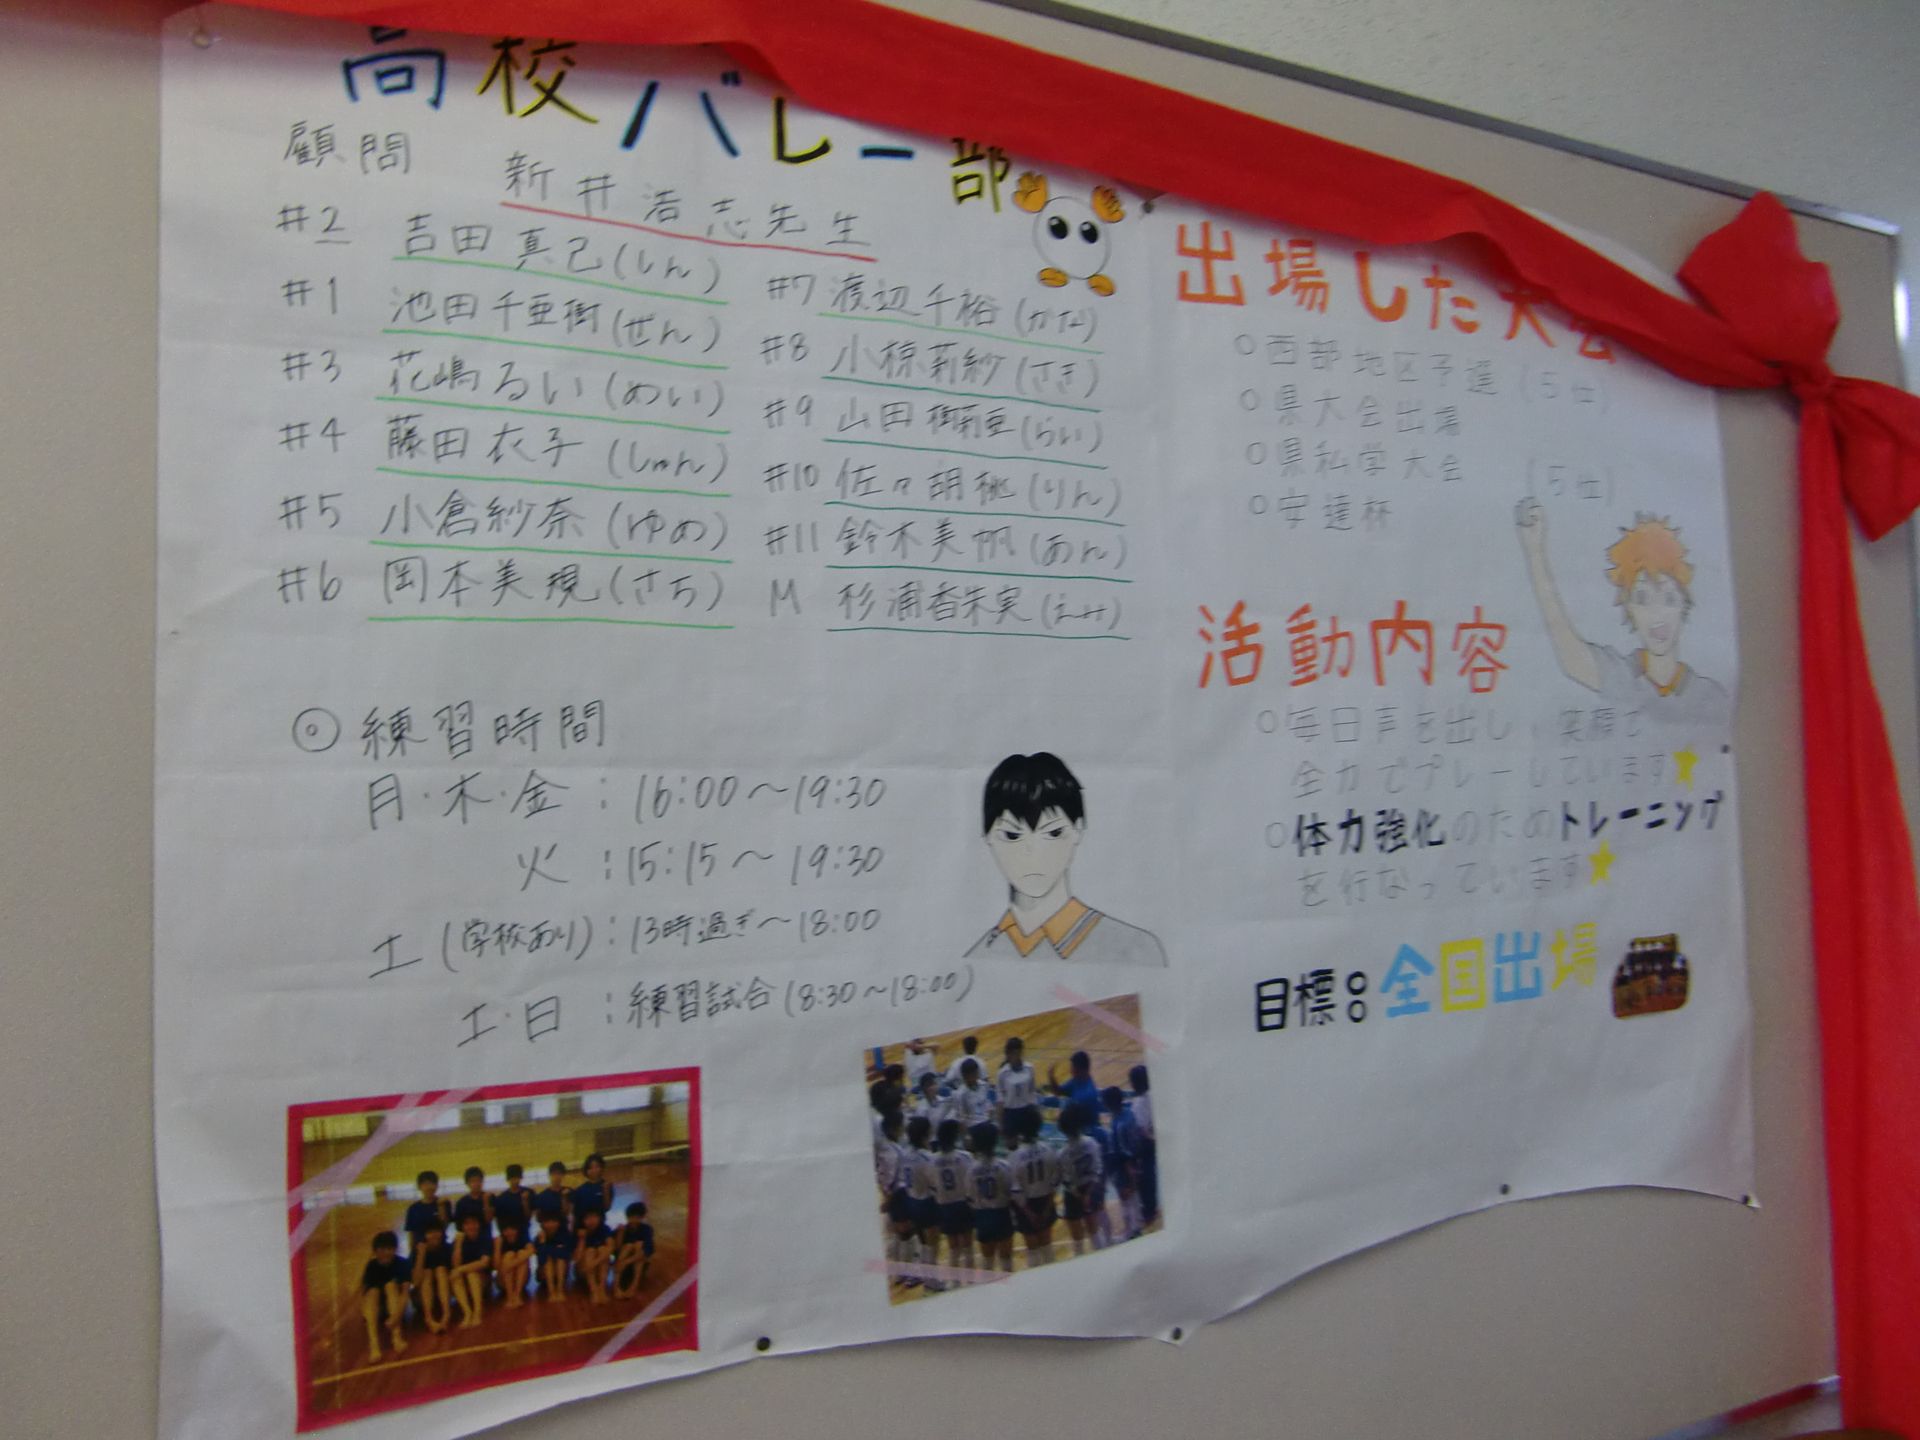 高校バレー部
顧問 新井浩志先生
#2 吉田真己(しん)
#1 池田千亜樹(ぜん)
#3 花嶋るい(めい)
#4 藤田衣子(しゅん)
#5 小倉紗奈(ゆめ)
#6 岡本美規(さち)
#7 渡辺千裕(かな)
#8 小椋莉紗(さき)
#9 山田樹莉亜(らい)
#10 佐々胡桃(りん)
#11 鈴木美帆(あん)
M 杉浦香朱実(えみ)
◎練習時間
月・木・金:16:00〜19:30
火:15:15〜19:30
土(学校あり):13時過ぎ〜18:00
土・日:練習試合(8:30〜18:00)
出場した大会
○西部地区予選(5位)
○県大会出場
○県私学大会(5位)
○安達杯
活動内容
○毎日声を出し、笑顔で
全力でプレーしています★
○体力強化のためトレーニング
を行なっています★
目標:全国出場
9
10
11